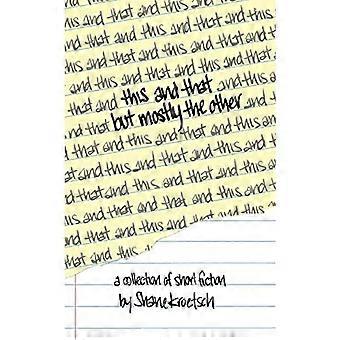 and that and this and that and this
and this and that and this and that and this
that and this and that and this and that
and that and this and that and this
and that and this and that and this
this and that
but mostly the other
and this and that and this
that and this and that and this
and that and this and that and this
this and that and this and that
and this and that and this
a collection of short fiction
by Shane Kroetsch